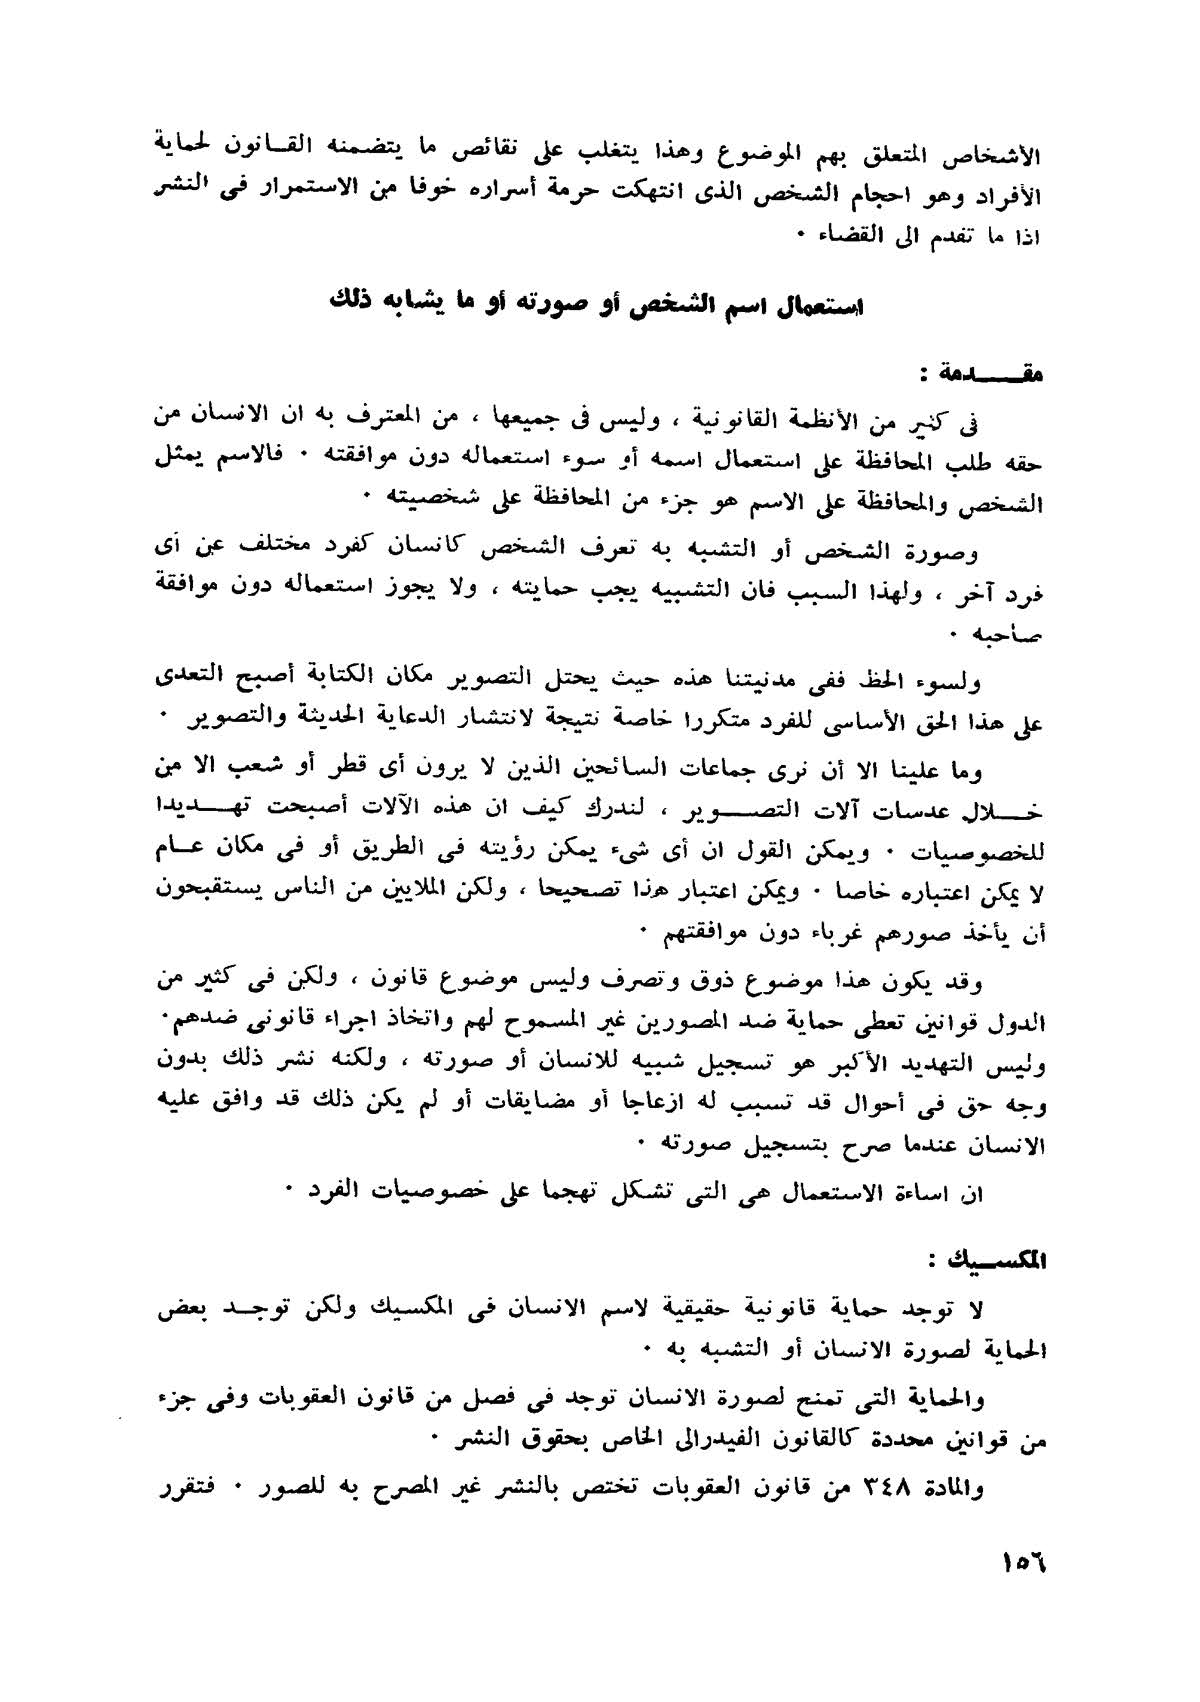 الأشخاص المتعلق بهم الموضوع وهذا يتغلب على نقائص ما يتضمنه القــانون لحماية
الأفراد وهو احجام الشخص الذى انتهكت حرمة أسراره خوفا من الاستمرار فى النشر
اذا ما تقدم الى القضاء ٠
استعمال اسم الشخص أو صورته أو ما يشابه ذلك
مقـــــدمة :
فى كثير من الأنظمة القانونية ، وليس فى جميعها ، من المعترف به ان الانسان من
حقه طلب المحافظة على استعمال اسمه أو سوء استعماله دون موافقته ٠ فالاسم يمثل
الشخص والمحافظة على الاسم هو جزء من المحافظة على شخصيته ٠
وصورة الشخص أو التشبه به تعرف الشخص كانسان كفرد مختلف عن أى
فرد آخر ، ولهذا السبب فان التشبيه يجب حمايته ، ولا يجوز استعماله دون موافقة
صاحبه ٠
ولسوء الحظ ففى مدنيتنا هذه حيث يحتل التصوير مكان الكتابة أصبح التعدى
على هذا الحق الأساسى للفرد متكررا خاصة نتيجة لانتشار الدعاية الحديثة والتصوير ٠
وما علينا الا أن نرى جماعات السائحين الذين لا يرون أى قطر أو شعب الا من
خـــلال عدسات آلات التصــــوير ، لندرك كيف ان هذه الآلات أصبحت تهـــديدا
للخصوصيات ٠ ويمكن القول ان أى شىء يمكن رؤيته فى الطريق أو فى مكان عــام
لا يمكن اعتباره خاصا ٠ ويمكن اعتبار هذا تصحيحا ، ولكن الملايين من الناس يستقبحون
أن يأخذ صورهم غرباء دون موافقتهم ٠
وقد يكون هذا موضوع ذوق وتصرف وليس موضوع قانون ، ولكن فى كثير من
الدول قوانين تعطى حماية ضد المصورين غير المسموح لهم واتخاذ اجراء قانونى ضدهم٠
وليس التهديد الأكبر هو تسجيل شبيه للانسان أو صورته ، ولكنه نشر ذلك بدون
وجه حق فى أحوال قد تسبب له ازعاجا أو مضايقات أو لم يكن ذلك قد وافق عليه
الانسان عندما صرح بتسجيل صورته ٠
ان اساءة الاستعمال هى التى تشكل تهجما على خصوصيات الفرد ٠
المكســيك :
لا توجد حماية قانونية حقيقية لاسم الانسان فى المكسيك ولكن توجــد بعض
الحماية لصورة الانسان أو التشبه به ٠
والحماية التى تمنح لصورة الانسان توجد فى فصل من قانون العقوبات وفى جزء
من قوانين محددة كالقانون الفيدرالى الخاص بحقوق النشر ٠
والمادة ٣٤٨ من قانون العقوبات تختص بالنشر غير المصرح به للصور ٠ فتقرر
١٥٦